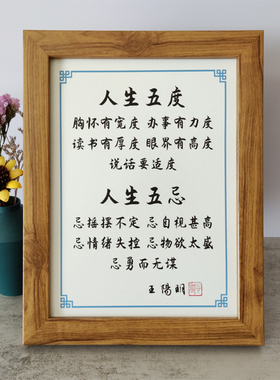 人生五度
胸怀有宽度 办事有力度
读书有厚度 眼界有高度
说话要适度
人生五忌
忌摇摆不定 忌自视甚高
忌情绪失控 忌物欲太盛
忌勇而无谋
王陽明